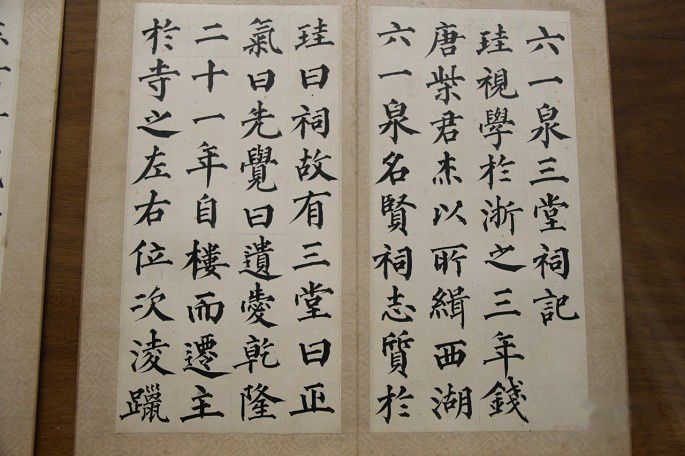 六一泉三堂祠記
珪視學於浙之三年錢
唐柴君杰以所緝西湖
六一泉名賢祠志質於
珪曰祠故有三堂曰正
氣曰先覺曰遺愛乾隆
二十一年自樓而遷主
於寺之左右位次淩躐